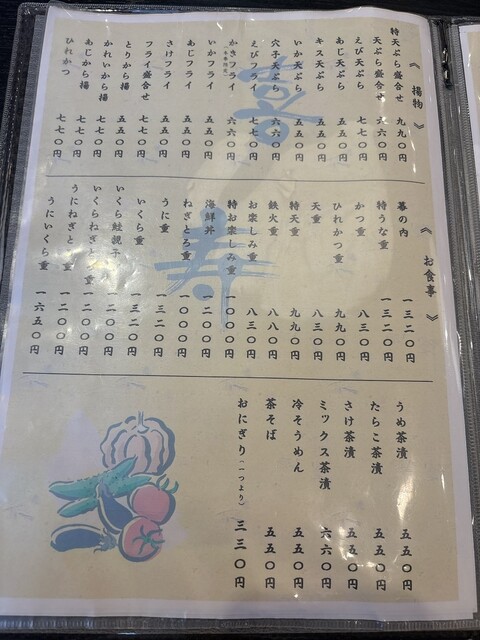 《 揚物 》
特天ぷら盛合せ 九九〇円
天ぷら盛合せ 六六〇円
えび天ぷら 七七〇円
あじ天ぷら 五五〇円
キス天ぷら 五五〇円
いか天ぷら 五五〇円
穴子天ぷら 六六〇円
えびフライ 七七〇円
かきフライ 六六〇円
いかフライ 五五〇円
あじフライ 五五〇円
さけフライ 五五〇円
フライ盛合せ 七七〇円
とりから揚 五五〇円
かれいから揚 七七〇円
あじから揚 七七〇円
ひれかつ 七七〇円
《 お食事 》
幕の内 一三二〇円
特うな重 一三二〇円
かつ重 八三〇円
ひれかつ重 九九〇円
天重 八三〇円
特天重 九九〇円
鉄火重 八八〇円
お楽しみ重 八三〇円
特お楽しみ重 一〇〇〇円
海鮮丼 一二〇〇円
ねぎとろ重 一〇〇〇円
うに重 一三二〇円
いくら重 一三二〇円
いくら鮭親子 一二〇〇円
いくらねぎとろ重 一二〇〇円
うにねぎとろ重 一二〇〇円
うにいくら重 一六五〇円
うめ茶漬 五五〇円
たらこ茶漬 五五〇円
さけ茶漬 五五〇円
ミックス茶漬 六六〇円
冷そうめん 五五〇円
茶そば 五五〇円
おにぎり(二つより) 三三〇円
寿